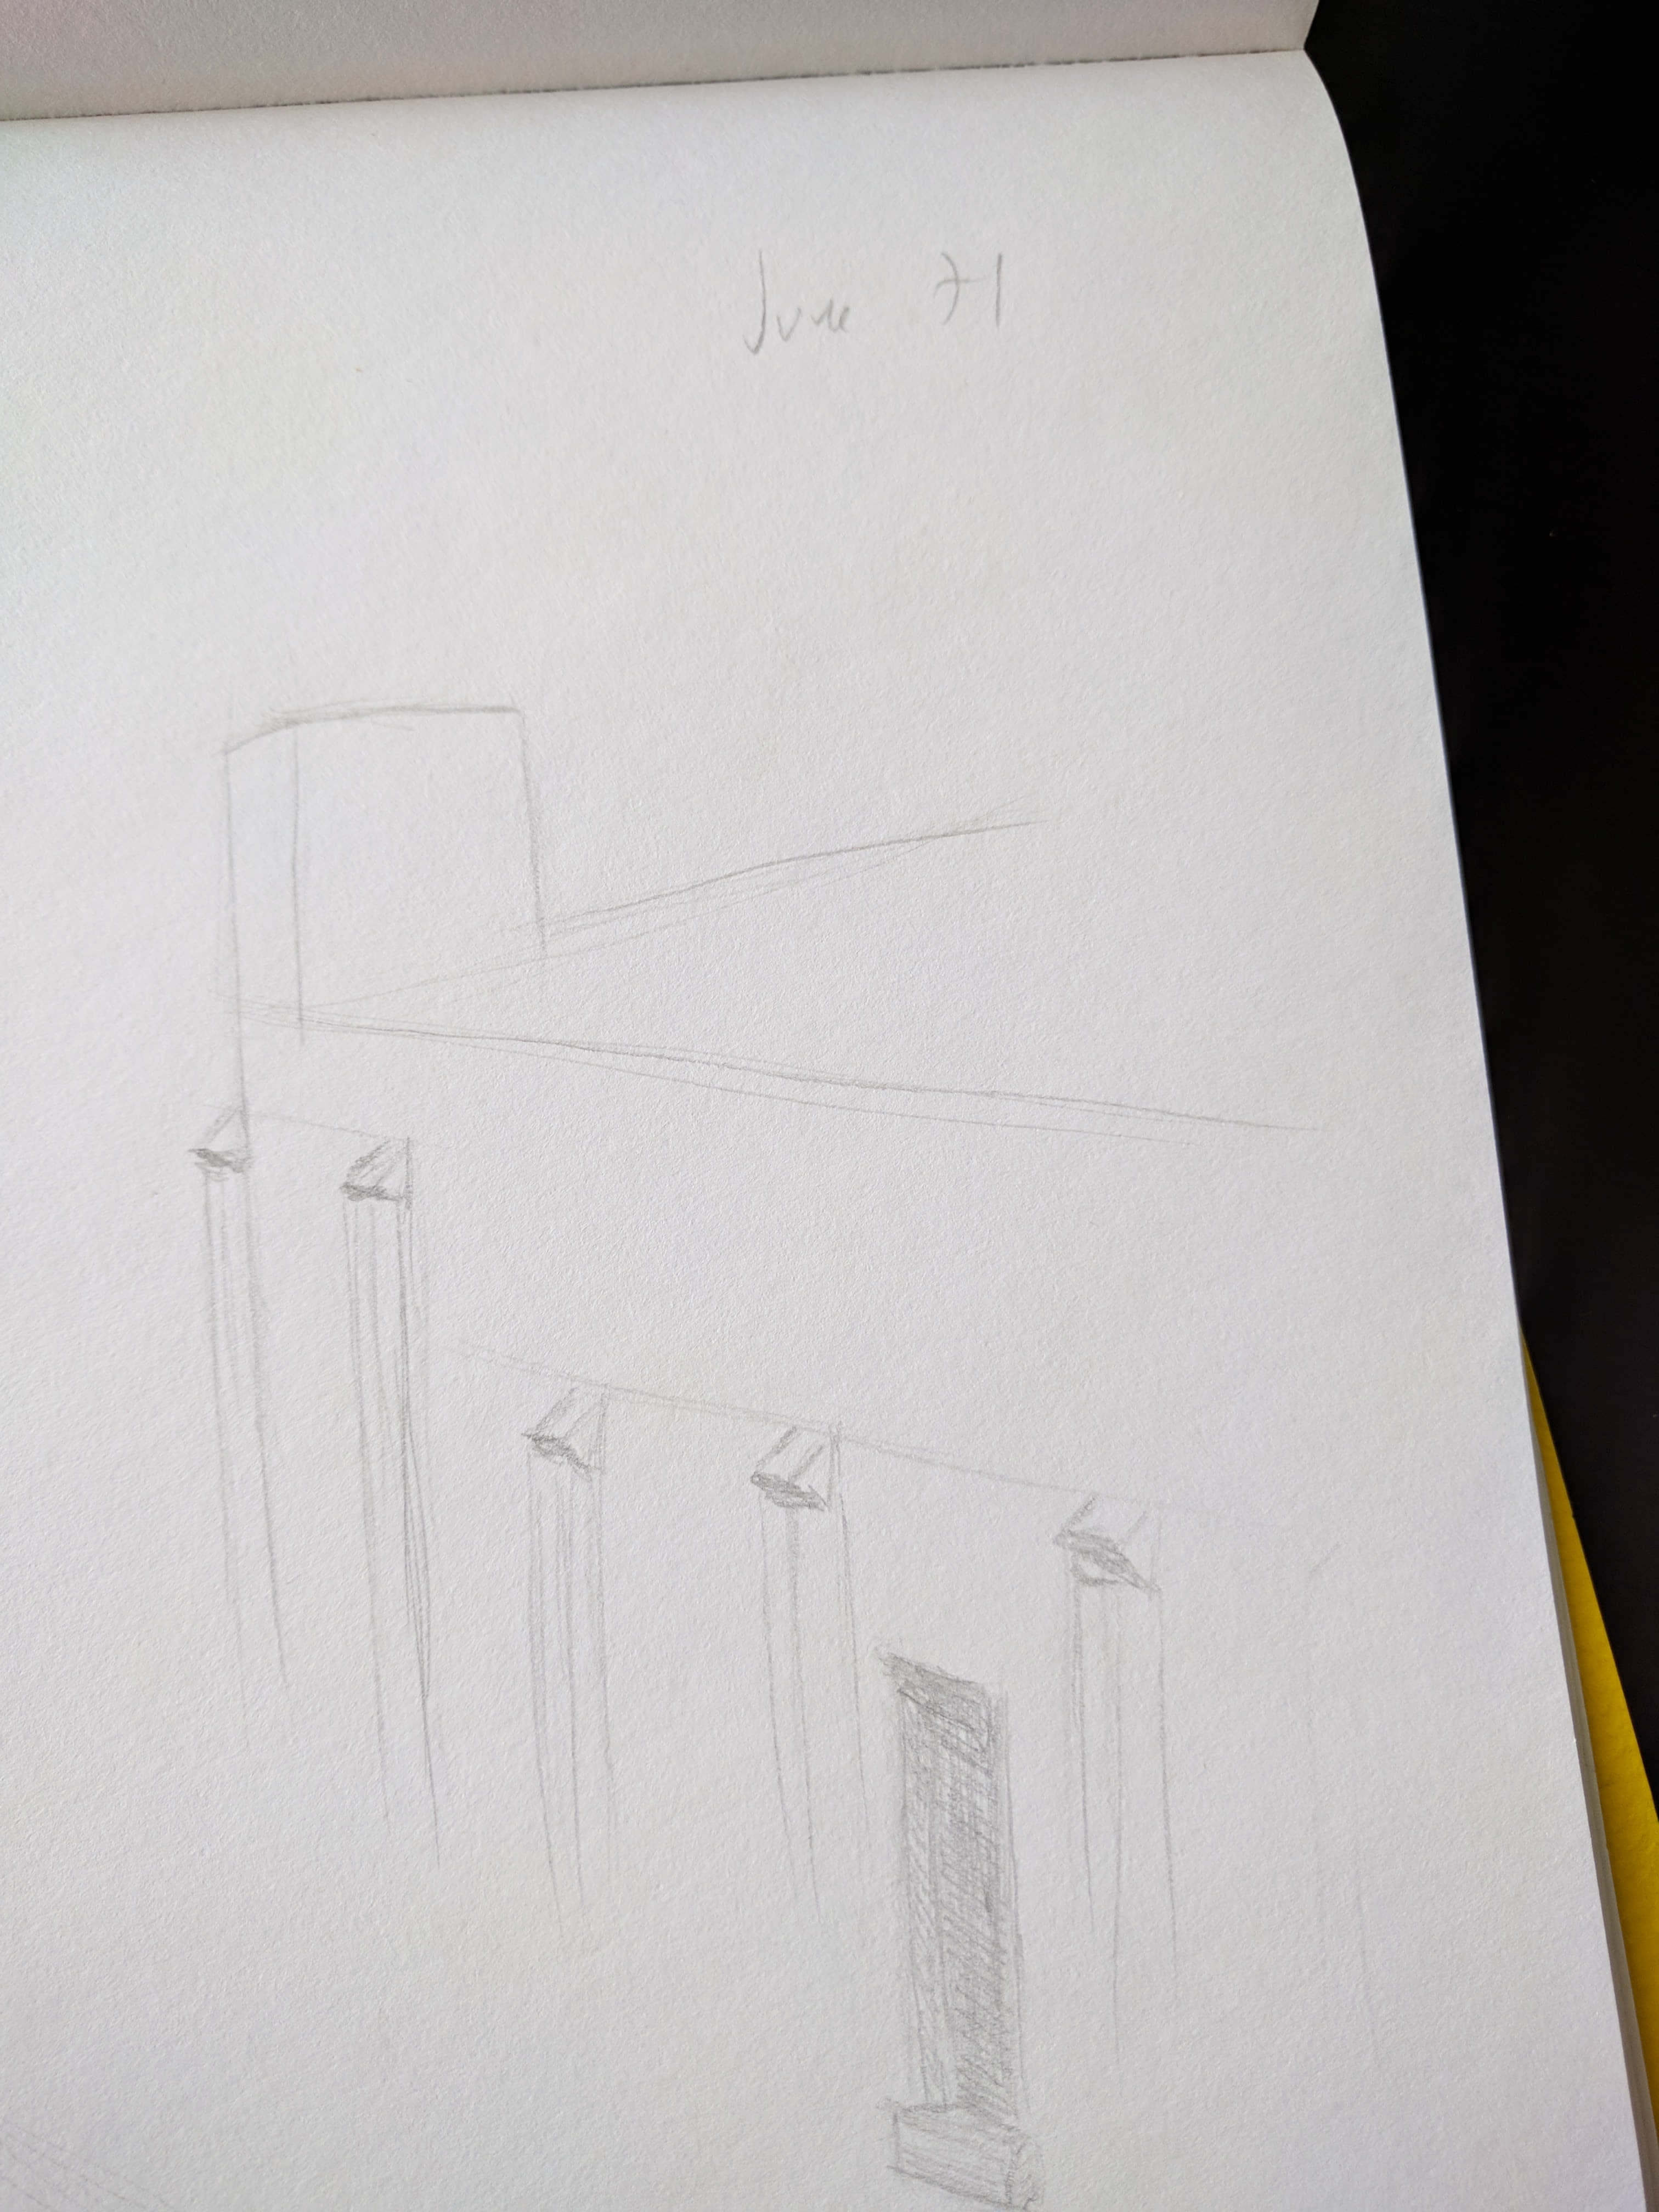 June 71